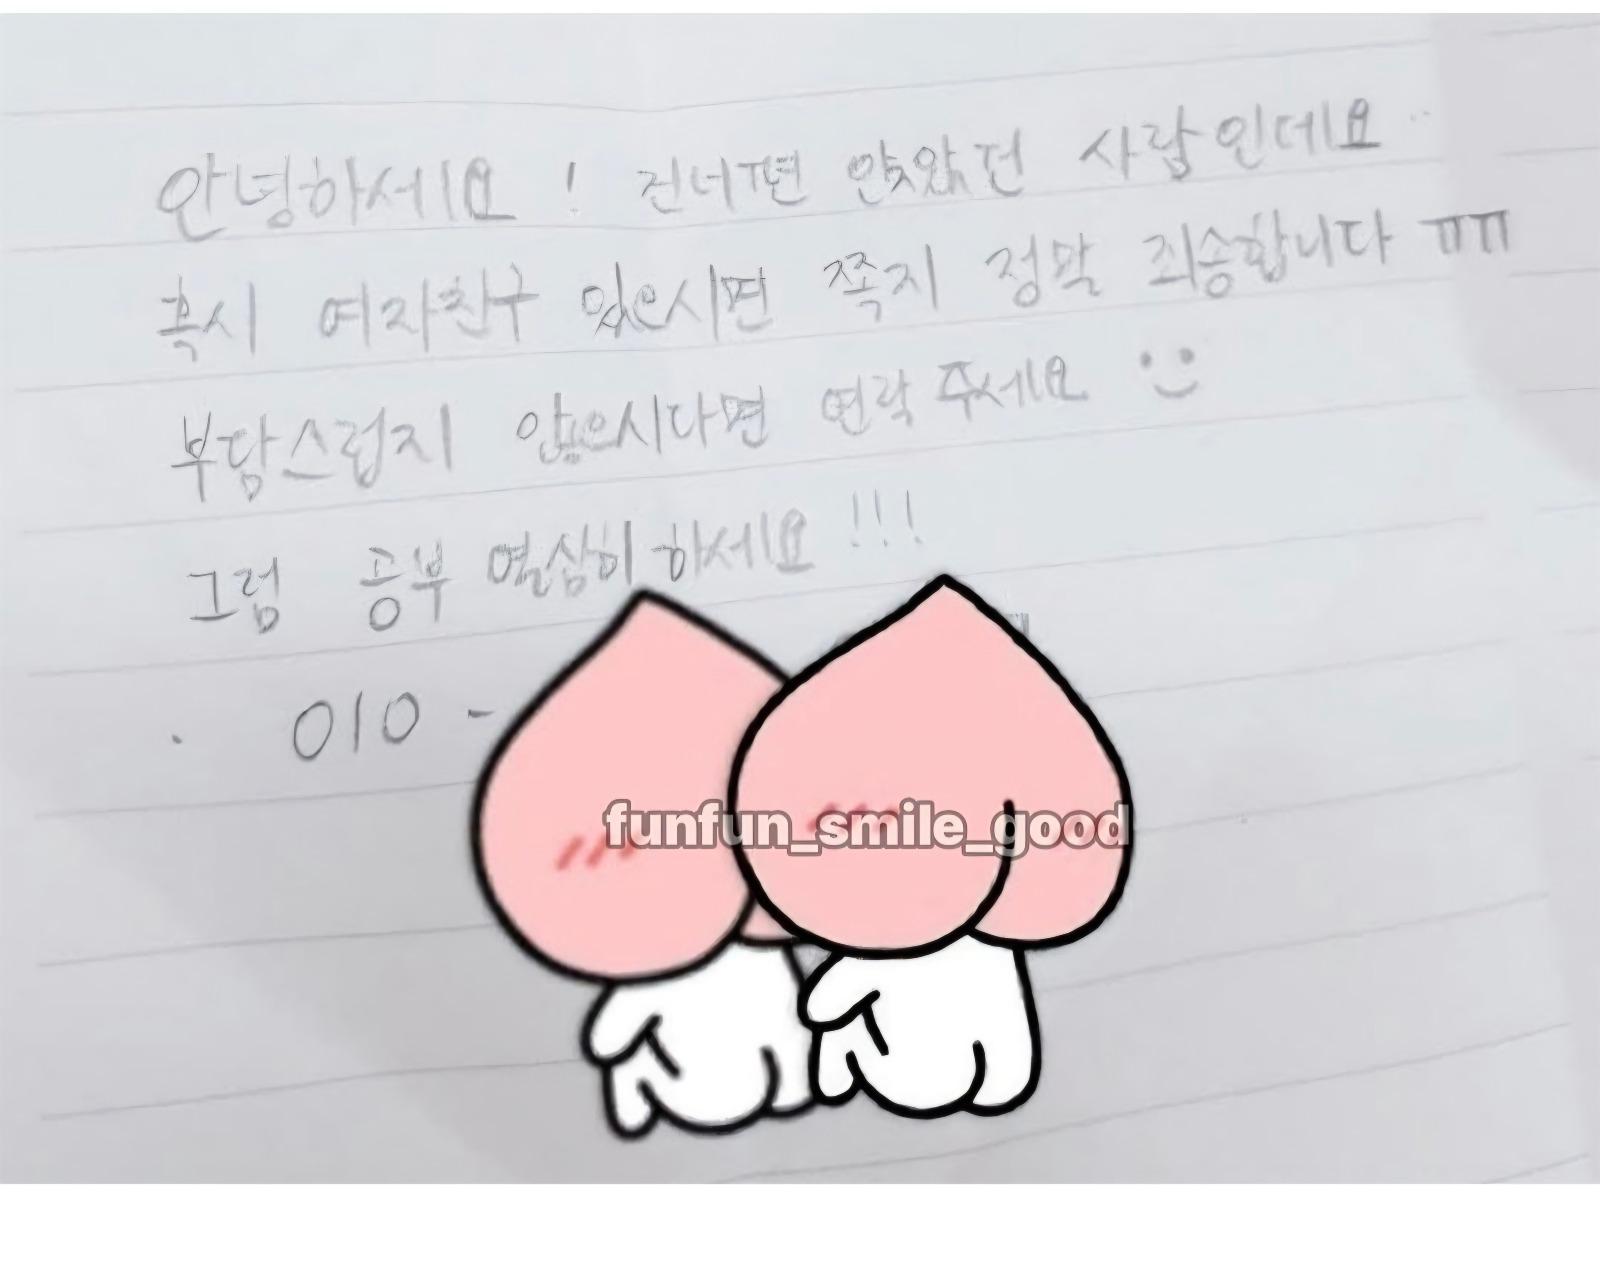 안녕하세요 ! 건너편 앉았던 사람인데요..
혹시 여자친구 있으시면 쪽지 정말 죄송합니다 ㅠㅠ
부담스럽지 않으시다면 연락 주세요 :)
그럼 공부 열심히 하세요 !!!
. 010 -
funfun_smile_good